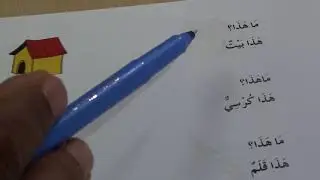 مَا هَذَا؟
هَذَا بَيْتٌ
مَاهَذَا؟
هَذَا كُرْسِيٌّ
مَا هَذَا؟
هَذَا قَلَمٌ